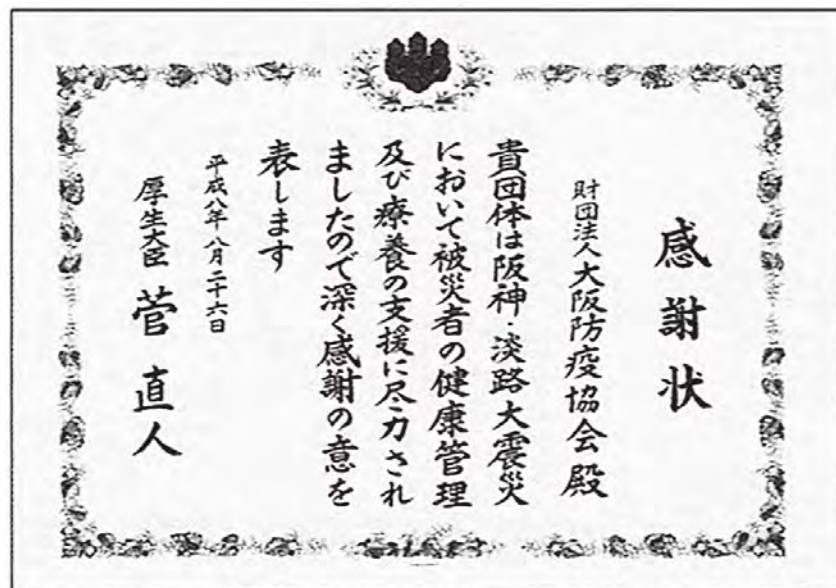 感謝状
財団法人大阪防疫協会殿
貴団体は阪神・淡路大震災
において被災者の健康管理
及び療養の支援に尽力され
ましたので深く感謝の意を
表します
平成八年八月二十六日
厚生大臣 菅直人